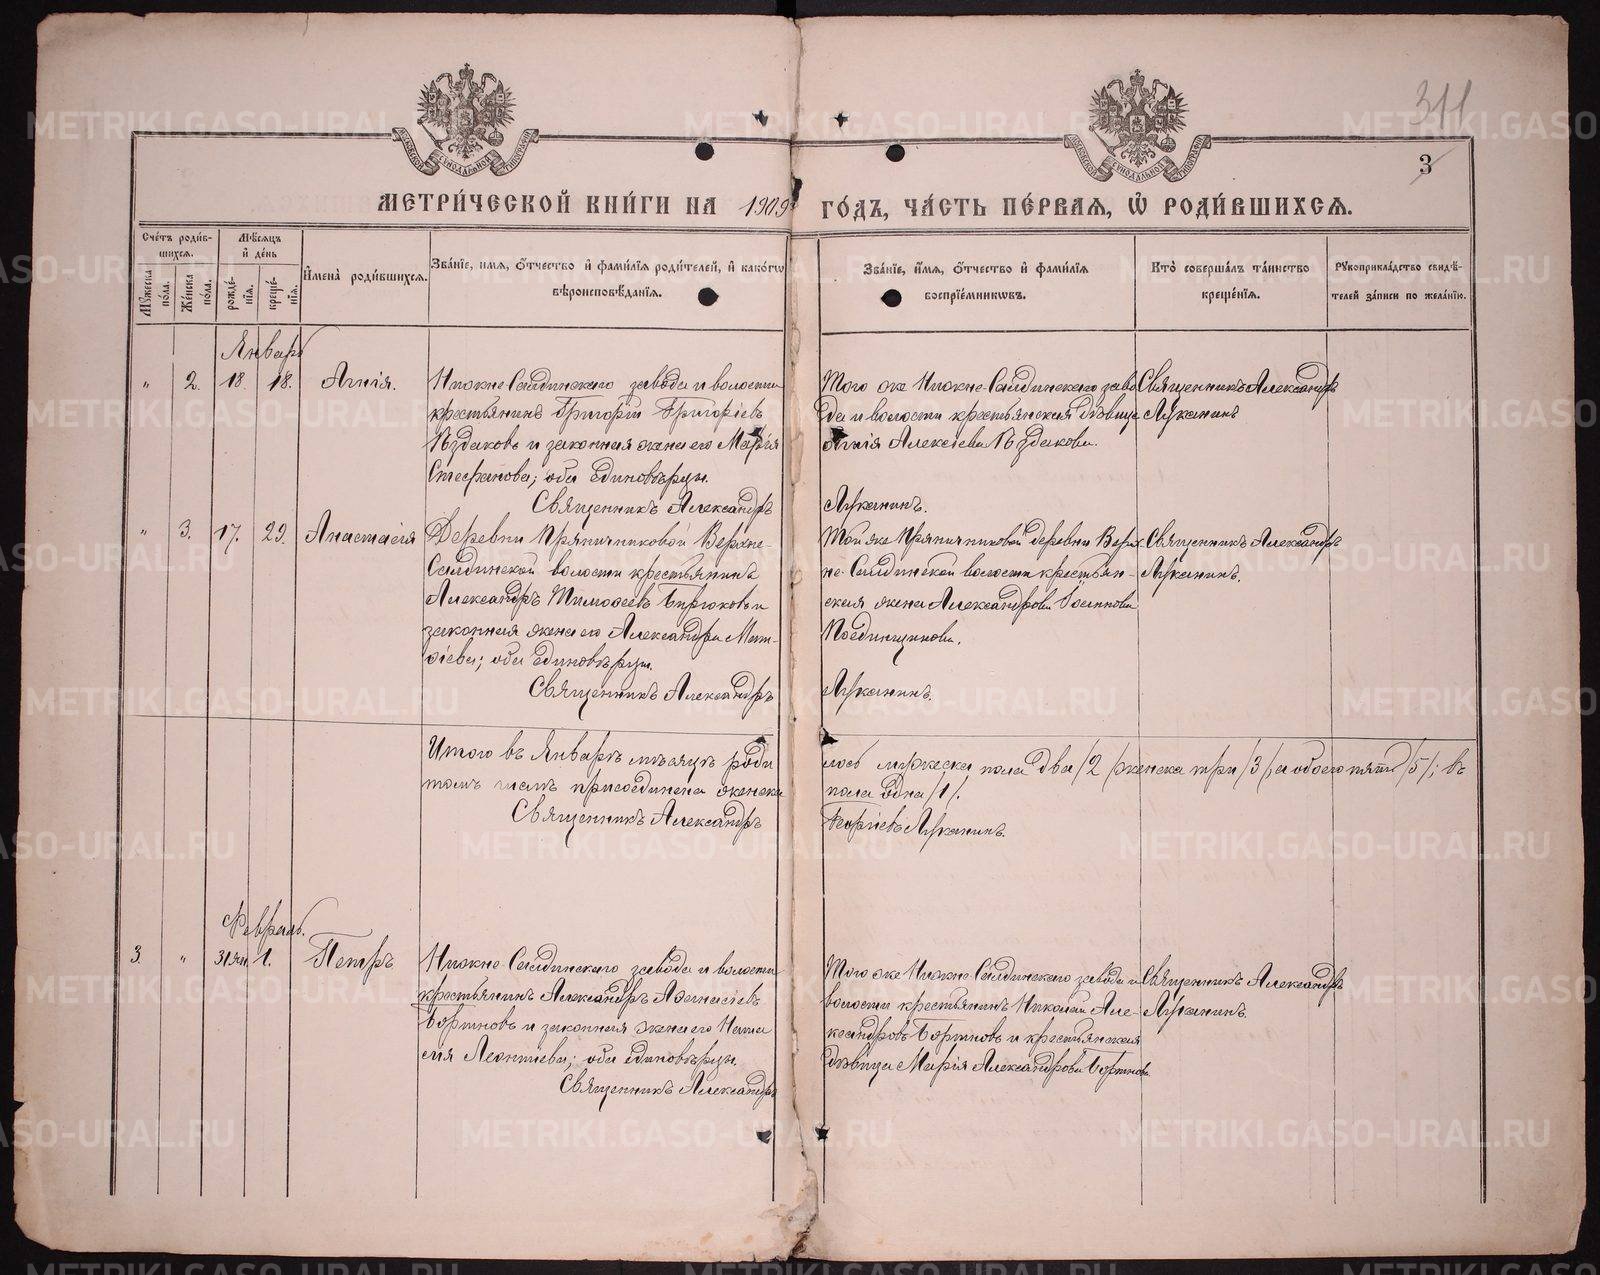 311
3
МЕТРИ́ЧЕСКОЙ КНИ́ГИ НА 1909 ГО́ДЪ, ЧА́СТЬ ПЕ́РВАЯ, Ѡ РОДИ́ВШИХСЯ.
Сче́тъ роди́вшихся.
Му́жеска по́ла.
Же́нска по́ла.
Мѣ́сяцъ и де́нь
рожде́нїя.
креще́нїя.
И҆мена̀ роди́вшихся.
Зва́нїе, и҆мя, ѻ҆́тчество и҆ фами́лїя роди́телей, и҆ како́гѡ
вѣроисповѣ́данїя.
Зва́нїе, и҆́мя, ѻ҆́тчество и҆ фами́лїя
воспрїе́мникѡвъ.
Кто̀ соверша́лъ та́инство
креще́нїя.
Рукоприкла́дство свидѣ́-
телей за́писи по жела́нїю.
Январь
" 2. 18. 18. Агнія.
Нижне-Салдинскаго завода и волости
крестьянинъ Григорій Григоріевъ
Ѣздаковъ и законная жена его Марія
Стефанова; оба единовѣрцы.
Священникъ Александръ
Того же Нижне-Салдинскаго заво
да и волости крестьянская дѣвица
Агнія Алексіева Ѣздакова.
Луканинъ.
Священникъ Александръ
Луканинъ
" 3. 17. 23. Анастасія
Деревни Пряничниковой Верхне-
Салдинской волости крестьянинъ
Александръ Тимоѳеевъ Бирюковъ и
законная жена его Александра Мат-
ѳіева; оба единовѣрцы.
Священникъ Александръ
Той же Пряничниковой деревни Верх
не-Салдинской волости крестьян-
ская жена Александрова Іоаннова
Поединщикова.
Луканинъ.
Священникъ Александръ
Луканинъ.
Итого въ Январѣ мѣсяцѣ роди
лось мужеска пола два /2/ женска три /3/, а обоего пять /5/; въ
томъ числѣ присоединена женска
пола одна /1/.
Священникъ Александръ
Георгіевъ Луканинъ.
Февраль.
3. " 31 ян. 1. Петръ
Нижне-Салдинскаго завода и волости
крестьянинъ Александръ Аѳанасіевъ
Бортновъ и законная жена его Ната
лія Леонтіева; оба единовѣрцы.
Священникъ Александръ
Того же Нижне-Салдинскаго завода и
волости крестьянинъ Николай Але-
ксандровъ Бортновъ и крестьянская
дѣвица Марія Александрова Бортнова
Священникъ Александръ
Луканинъ